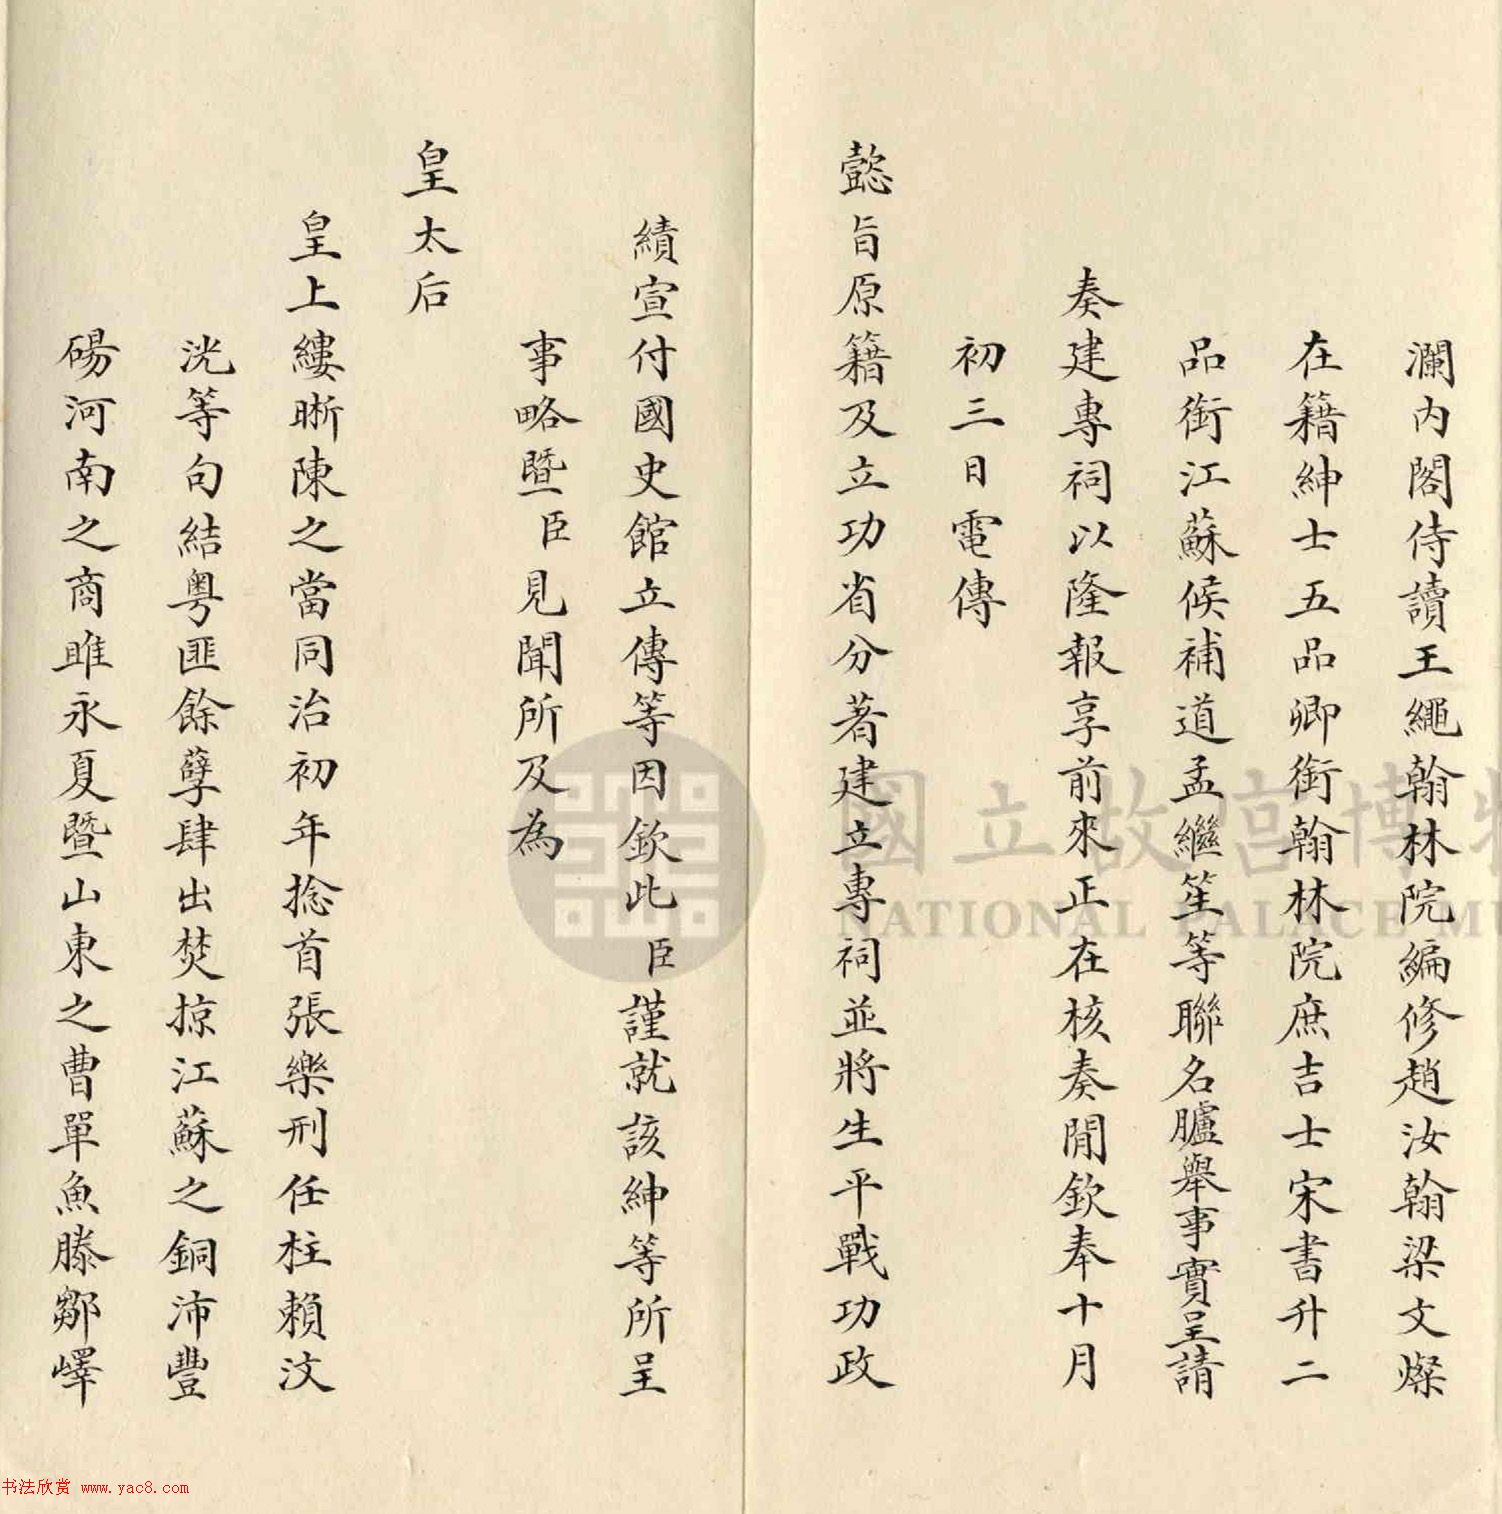 瀾內閣侍讀王繩翰林院編修趙汝翰梁文燦
在籍紳士五品卿銜翰林院庶吉士宋書升二
品銜江蘇候補道孟繼笙等聯名臚舉事實呈請
奏建專祠以隆報享前來正在核奏閒欽奉十月
初三日電傳
懿旨原籍及立功省分著建立專祠並將生平戰功政
績宣付國史館立傳等因欽此臣謹就該紳等所呈
事略暨臣見聞所及為
皇太后
皇上縷晰陳之當同治初年捻首張樂刑任柱賴汶
洸等句結粵匪餘孽肆出焚掠江蘇之銅沛豐
碭河南之商雎永夏暨山東之曹單魚滕鄒嶧
國立故宮博物
NATIONAL PALACE MU
书法欣赏 www.yac8.com